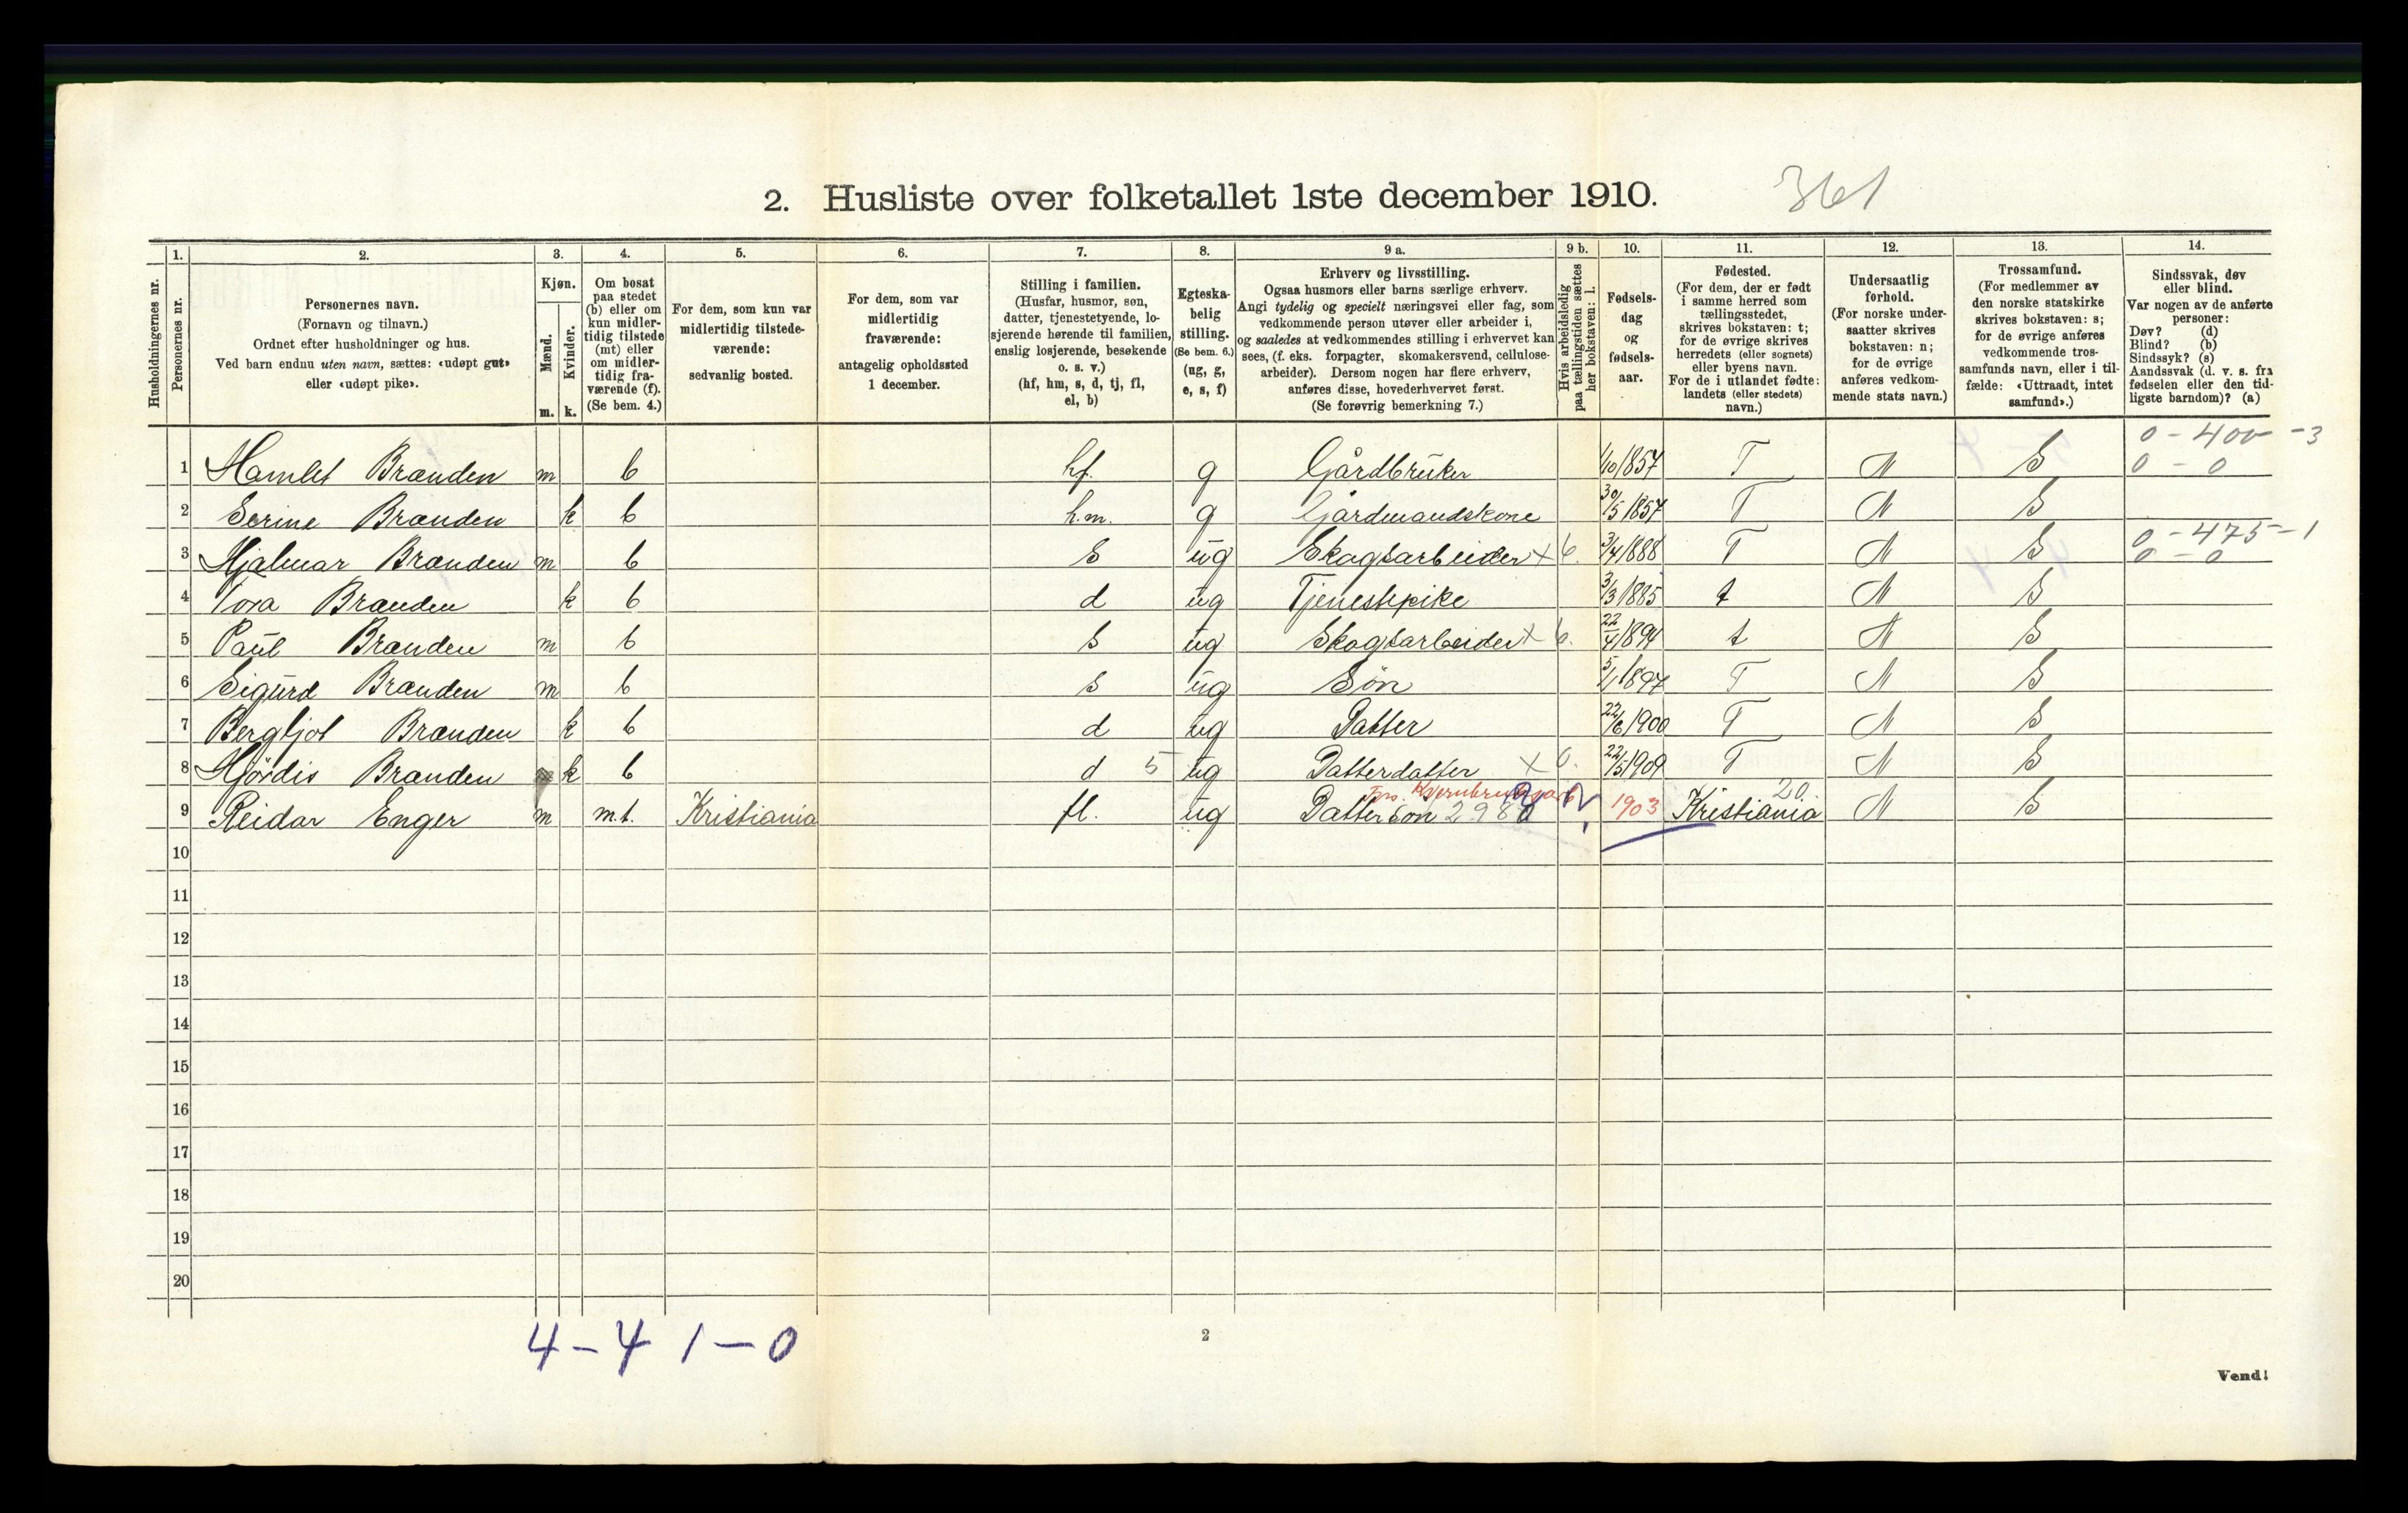 2. Husliste over folketallet 1ste december 1910.
361
Husholdningernes nr.
1.
Personernes nr.
2.
Personernes navn.
(Fornavn og tilnavn.)
Ordnet efter husholdninger og hus.
Ved barn endnu uten navn, sættes: «udøpt gut»
eller «udøpt pike».
3.
Kjøn.
Mænd.
m.
Kvinder.
k.
4.
Om bosat
paa stedet
(b) eller om
kun midler-
tidig tilstede
(mt) eller
om midler-
tidig fra-
værende (f).
(Se bem. 4.)
5.
For dem, som kun var
midlertidig tilstede-
værende:
sedvanlig bosted.
6.
For dem, som var
midlertidig
fraværende:
antagelig opholdssted
1 december.
7.
Stilling i familien.
(Husfar, husmor, søn,
datter, tjenestetyende, lo-
sjerende hørende til familien,
enslig losjerende, besøkende
o. s. v.)
(hf, hm, s, d, tj, fl,
el, b)
8.
Egteska-
belig
stilling.
(Se bem. 6.)
(ug, g,
e, s, f)
9 a.
Erhverv og livsstilling.
Ogsaa husmors eller barns særlige erhverv.
Angi tydelig og specielt næringsvei eller fag, som
vedkommende person utøver eller arbeider i,
og saaledes at vedkommendes stilling i erhvervet kan
sees, (f. eks. forpagter, skomakersvend, cellulose-
arbeider). Dersom nogen har flere erhverv,
anføres disse, hovederhvervet først.
(Se forøvrig bemerkning 7.)
9 b.
Hvis arbeidsledig
paa tællingstiden sættes
her bokstaven: l.
10.
Fødsels-
dag
og
fødsels-
aar.
11.
Fødested.
(For dem, der er født
i samme herred som
tællingsstedet,
skrives bokstaven: t;
for de øvrige skrives
herredets (eller sognets)
eller byens navn.
For de i utlandet fødte:
landets (eller stedets)
navn.)
12.
Undersaatlig
forhold.
(For norske under-
saatter skrives
bokstaven: n;
for de øvrige
anføres vedkom-
mende stats navn.)
13.
Trossamfund.
(For medlemmer av
den norske statskirke
skrives bokstaven: s;
for de øvrige anføres
vedkommende tros-
samfunds navn, eller i til-
fælde: «Uttraadt, intet
samfund».)
14.
Sindssvak, døv
eller blind.
Var nogen av de anførte
personer:
Døv? (d)
Blind? (b)
Sindssyk? (s)
Aandssvak (d. v. s. fra
fødselen eller den tid-
ligste barndom)? (a)
1 Hamlet Brænden m b hf. g Gårdbruker 1/10 1857 T N S 0 - 400 - 3
0 - 0
2 Serine Brænden k b h.m. g Gårdmandskone 30/5 1857 T N S
3 Hjalmar Brænden m b S ug Skogsarbeider x 6. 3/4 1888 T N S 0 - 475 - 1
0 - 0
4 Tora Brænden k b d ug Tjenestepike 3/3 1885 t N S
5 Paul Brænden m b s ug Skogsarbeider x 6. 22/4 1894 t N S
6 Sigurd Brænden m b s ug Søn 5/1 1897 T N S
7 Bergljot Brænden k b d ug Datter 22/6 1900 T N S
8 Hjørdis Brænden k b d 5 ug Datterdatter x 0. 22/5 1909 T N S
9 Reidar Enger m m.t. Kristiania fl. ug Dattersøn 2980 1903 Kristiania 20. N S
10
11
12
13
14
15
16
17
18
19
20
4 - 4 1 - 0
2
Vend!